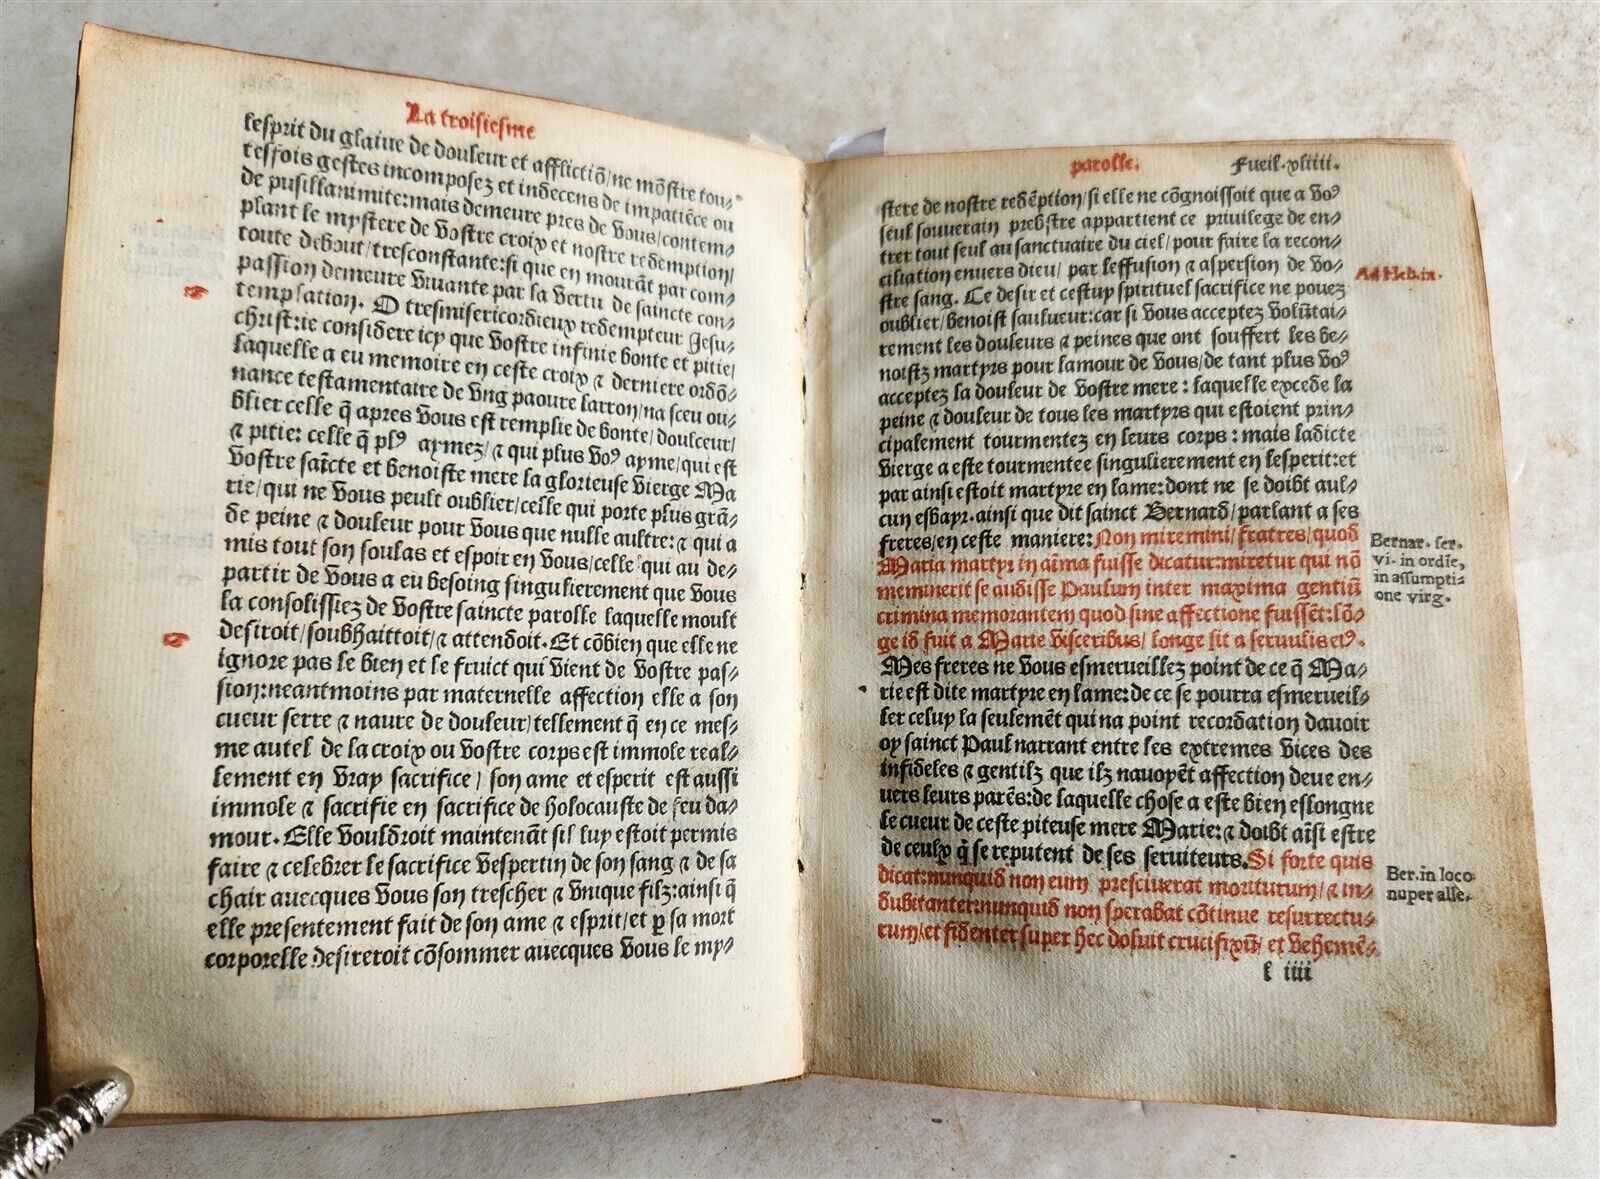 La troisiesme
lesprit du glaiue de douleur et afflictiõ/ne mõstre tou⸗
tesfois gestes incomposez et indecens de impatiẽce ou
de pusillanimite:mais demeure pres de vous/contem⸗
plant le mystere de vostre croix et nostre redemption/
toute debout/tresconstante:si que en mourãt par com⸗
passion demeure viuante par la vertu de saincte con⸗
templation. O tresmisericordieux redempteur Jesu⸗
christ:ie considere icy que vostre infinie bonte et pitie/
laquelle a eu memoire en ceste croix ⁊ derniere ordõ⸗
nance testamentaire de vng paoure larron/na sceu ou⸗
blier celle q̃ apres vous est remplie de bonte/doulceur/
⁊ pitie: celle q̃ plꝰ aymez/⁊ qui plus voꝰ ayme/qui est
vostre saĩcte et benoiste mere la glorieuse vierge Ma
rie/qui ne vous peult oublier/celle qui porte plus grã⸗
de peine ⁊ douleur pour vous que nulle aultre:⁊ qui a
mis tout son soulas et espoir en vous/celle qui au de⸗
partir de vous a eu besoing singulierement que vous
la consolissiez de vostre saincte parolle laquelle moult
desiroit/soubhaittoit/⁊ attendoit. Et cõbien que elle ne
ignore pas le bien et le fruict qui vient de vostre pas⸗
sion:neantmoins par maternelle affection elle a son
cueur serre ⁊ naure de douleur/tellement q̃ en ce mes⸗
me autel de la croix ou vostre corps est immole real⸗
lement en vray sacrifice/ son ame et esperit est aussi
immole ⁊ sacrifie en sacrifice de holocauste de feu da⸗
mour. Elle vouldroit maintenãt sil luy estoit permis
faire ⁊ celebrer le sacrifice vespertin de son sang ⁊ de sa
chair auecques vous son trescher ⁊ vnique filz:ainsi q̃
elle presentement fait de son ame ⁊ esprit/et ꝑ sa mort
corporelle desireroit cõsommer auecques vous le my⸗
parolle. Fueil.xliiii.
stere de nostre redẽption/si elle ne cõgnoissoit que a voꝰ
seul souuerain prebstre appartient ce priuilege de en⸗
trer tout seul au sanctuaire du ciel/pour faire la recon⸗
ciliation enuers dieu/ par leffusion ⁊ aspersion de vo⸗
stre sang. Ce desir et cestuy spirituel sacrifice ne pouez
oublier/benoist saulueur:car si vous acceptez volũtai⸗
rement les douleurs ⁊ peines que ont souffert les be⸗
noistz martyrs pour lamour de vous/de tant plus voꝰ
acceptez la douleur de vostre mere : laquelle excede la
peine ⁊ douleur de tous les martyrs qui estoient prin⸗
cipalement tourmentez en leurs corps : mais ladicte
vierge a este tourmentee singulierement en lesperit:et
par ainsi estoit martyre en lame:dont ne se doibt aul⸗
cun esbayr.ainsi que dit sainct Bernard/parlant a ses
freres/en ceste maniere: Non miremini/fratres/quod
Maria martyr in aĩma fuisse dicatur:miretur qui nõ
meminerit se audisse Paulum inter maxima gentiũ
crimina memorantem quod sine affectione fuissẽt:lõ⸗
ge id fuit a Marie visceribus/ longe sit a seruulis eiꝰ.
Mes freres ne vous esmerueillez point de ce q̃ Ma⸗
rie est dite martyre en lame:de ce se pourra esmerueil⸗
ler celuy la seulemẽt qui na point recordation dauoir
oy sainct Paul narrant entre les extremes vices des
infideles ⁊ gentilz que ilz nauoyẽt affection deue en⸗
uers leurs parẽs:de laquelle chose a este bien eslongne
le cueur de ceste piteuse mere Marie: ⁊ doibt aĩsi estre
de ceulx q̃ se reputent de ses seruiteurs. Si forte quis
dicat:nunquid non eum presciuerat moriturum/⁊ in⸗
dubitanter:nunquid non sperabat cõtinue resurrectu⸗
rum/et fidenter:super hec doluit crucifixũ/ et vehemẽ⸗
l iiii
Ad Heb.ix.
Bernar. ser.
vi. in ordie,
in assumpti⸗
one virg.
Ber. in loco
nuper alle.